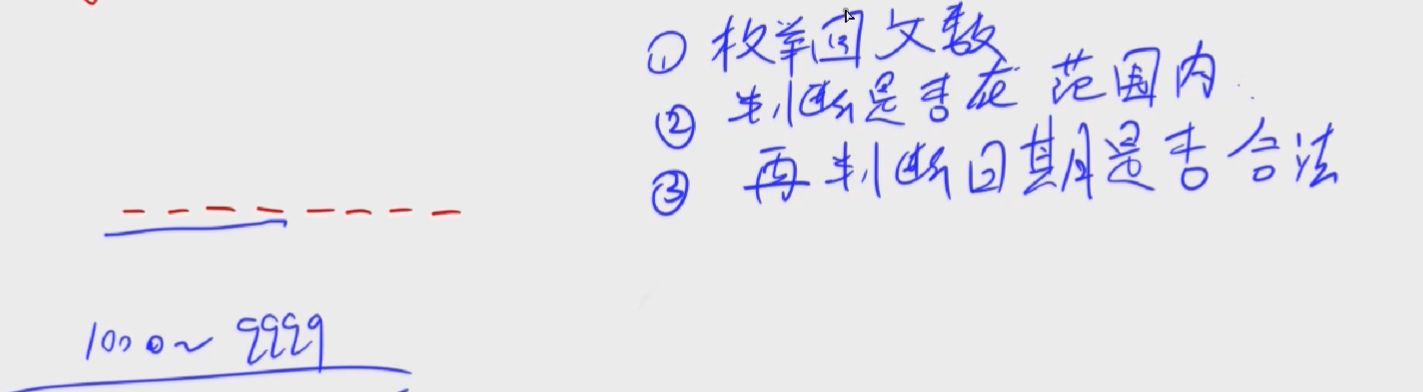 ① 枚举回文数
② 判断是否在范围内
③ 再判断日期是否合法
1000~9999